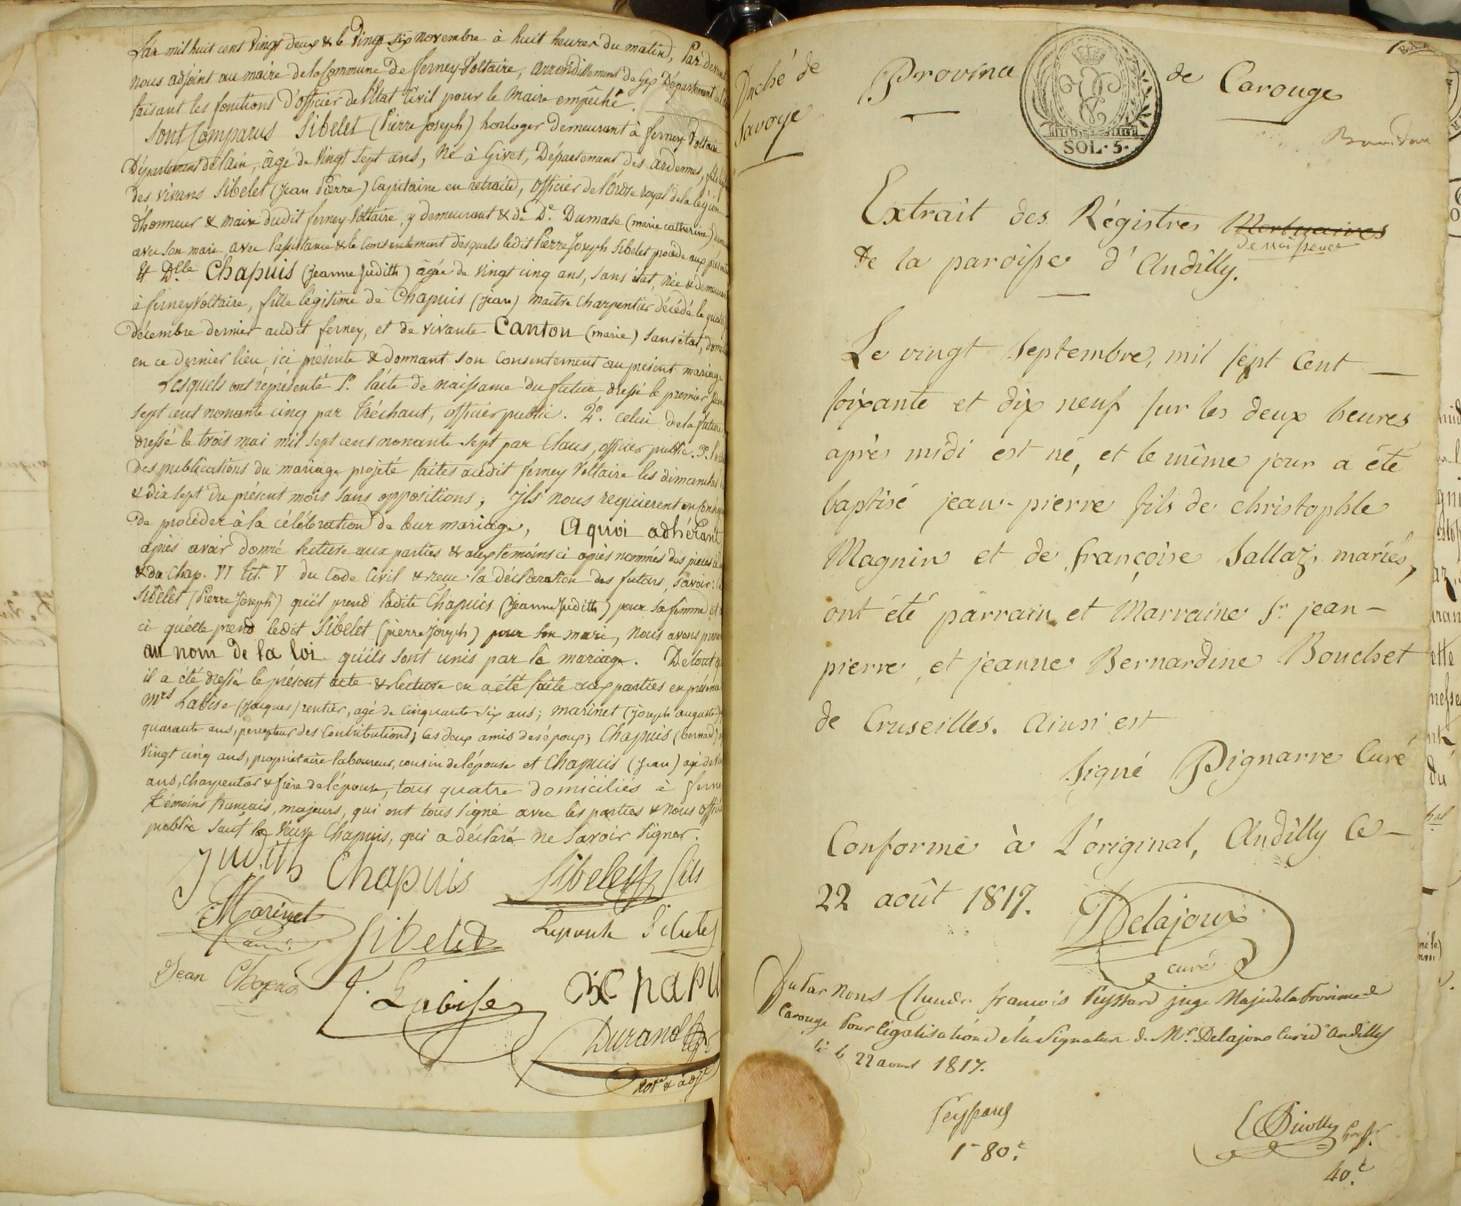 L'an mil huit cent vingt deux & le vingt six novembre à huit heures du matin, Par devant
nous adjoint au maire de la Commune de ferney-Voltaire, arrondissement de Gex Département
faisant les fonctions d'officier de l'Etat Civil pour le Maire empêché.
Sont Comparus Sibelet (Pierre Joseph) horloger demeurant à ferney Voltaire
Département de l'ain, âgé de vingt sept ans, né à Givet, Département des ardennes, fils
des vivans Sibelet (Jean Pierre) Capitaine en retraite, officier de l'ordre royal de la légion
d'honneur & Maire dudit ferney Voltaire, y demeurant & de De. Dumase (marie catherine)
avec son mari, avec l'assistance & le consentement desquels ledit Pierre Joseph Sibelet procède aux
Et Dlle. Chapuis (Jeanne Judith) âgée de vingt cinq ans, sans état, née & demeurant
à ferney Voltaire, fille légitime de Chapuis (Jean) maître Charpentier décédé le
décembre dernier audit ferney, et de vivante Canton (marie) sans état,
en ce dernier lieu ici présente & donnant son Consentement au présent mariage
Lesquels ont représenté 1o. l'acte de naissance du futur dressé le premier
sept cent nonante cinq par Tréchaut, officier public. 2o. celui de la future
dressé le trois mai mil sept cent nonante sept par Claus, officier public. 3o.
des publications du mariage projeté faites audit ferney Voltaire les dimanches
& dix sept du présent mois sans oppositions; ils nous requierent
de procéder à la célébration de leur mariage, A quoi adhérant
après avoir donné lecture aux parties & aux témoins ci après nommés des pièces
& du Chap. VI tit. V du Code Civil & reçu la déclaration des futurs, savoir:
Sibelet (Pierre Joseph) qu'il prend ladite Chapuis (Jeanne Judith) pour sa femme et
ci qu'elle prend ledit Sibelet (pierre Joseph) pour son mari, nous avons
au nom de la loi qu'ils sont unis par le mariage. De tout
il a été dressé le présent acte & lecture en a été faite aux parties en présence
Mrs Labise (Jacques) rentier, agé de cinquante six ans; marinet (Joseph auguste)
quarante ans, percepteur des Contributions; les deux amis de l'époux; Chapuis (bernard)
vingt cinq ans, propriétaire laboureur, cousin de l'épouse et Chapuis (Jean) agé de
ans, Charpentier & frère de l'épouse, tous quatre domiciliés à
témoins français, majeurs, qui ont tous signé avec les parties & nous
public sauf la Veuve Chapuis, qui a déclaré ne savoir signer.
Judith Chapuis Sibelet fils
Marinet Sibelet
Jean Chapuis J. Labise Chapu
Durand
Duché de
Savoye
Province de Carouge
SOL. 5.
Extrait des Régistres Mortuaires
de naissance
de la paroisse d'Andilly.
Le vingt septembre, mil sept cent
soixante et dix neuf sur les deux heures
après midi est né, et le même jour a été
baptisé jean-pierre fils de christophle
Magnin et de françoise Sallaz mariés,
ont été parrain et Marraine Sr. jean-
pierre, et jeanne Bernardine Bouchet
de Cruseilles. Ainsi est
signé Pignarre Curé
Conforme à l'original, Andilly le
22 août 1817.
Delajoux
curé
Vu par nous Claude françois Peyssard juge Maje de la Province de
Carouge Pour légalisation de la Signature de Mr. Delajoux Curé d'andilly
le 22 aout 1817.
Peyssard
1-80.c
40.c